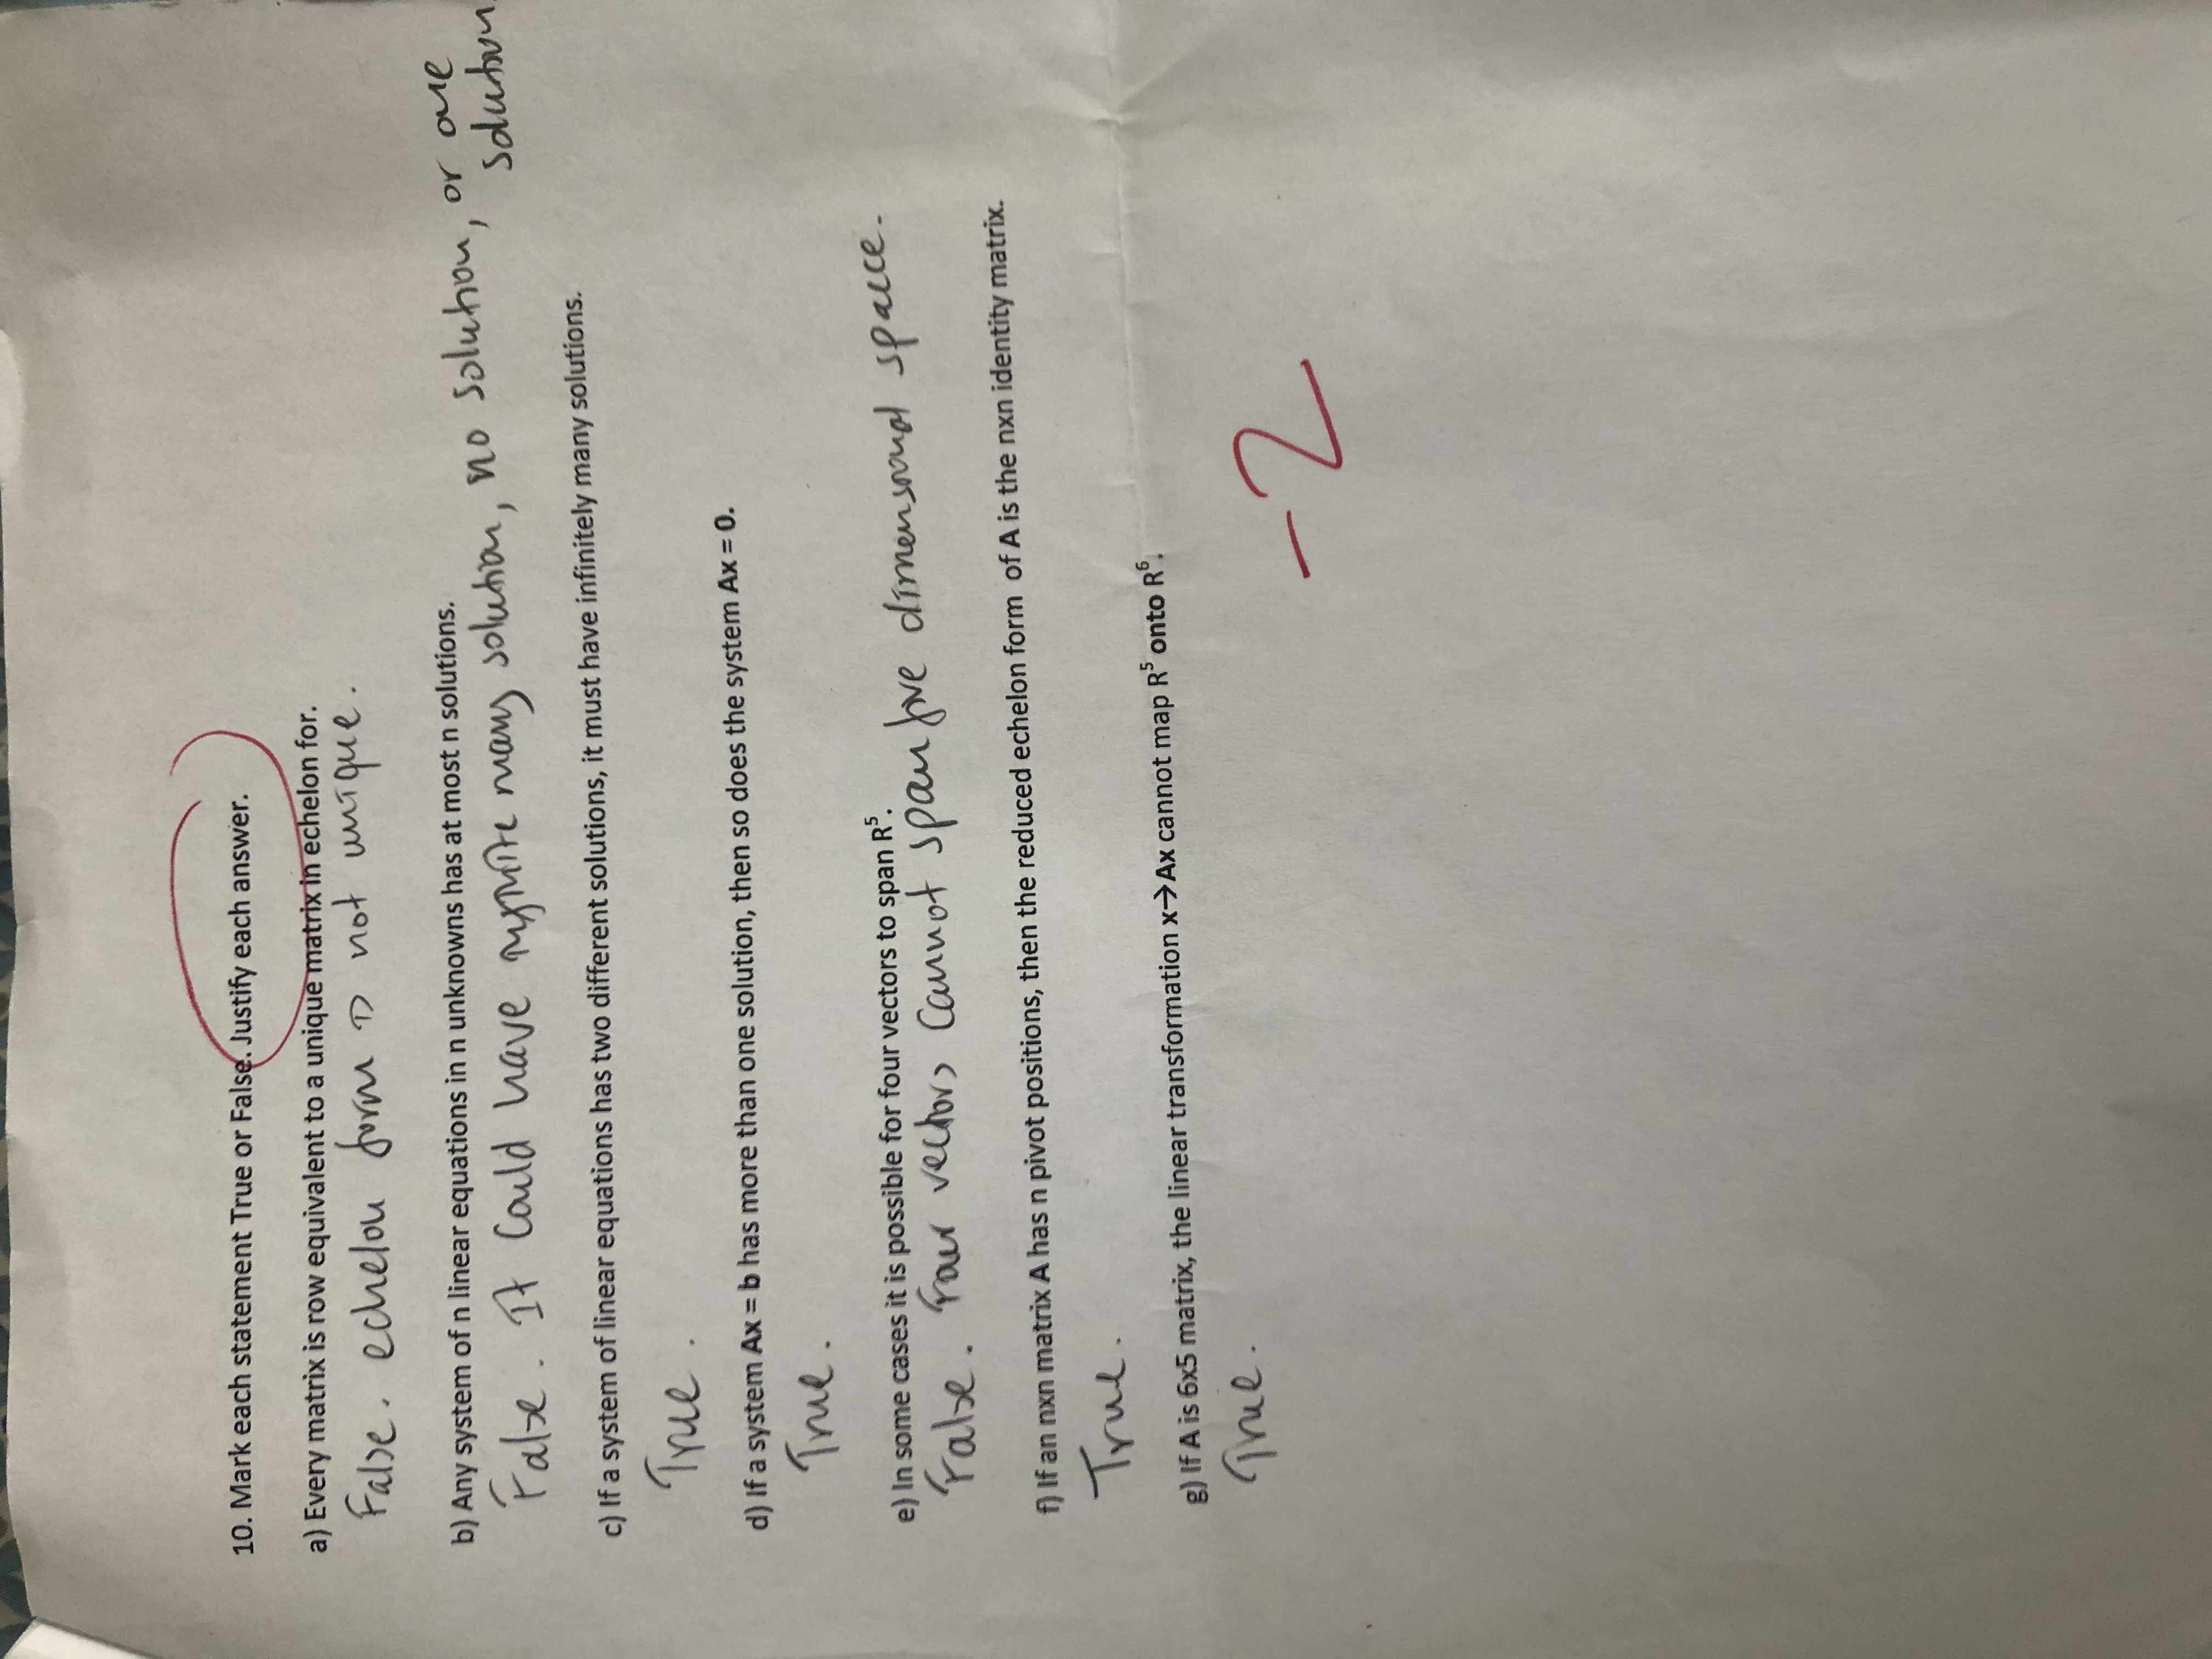 10. Mark each statement True or False. Justify each answer.
a) Every matrix is row equivalent to a unique matrix in echelon for.
False. echelon form is not unique.
b) Any system of n linear equations in n unknowns has at most n solutions.
False. It could have infinite many solution, no solution, or one
solution
c) If a system of linear equations has two different solutions, it must have infinitely many solutions.
True.
d) If a system Ax = b has more than one solution, then so does the system Ax = 0.
True.
e) In some cases it is possible for four vectors to span R⁵.
False. Four vectors cannot span five dimensional spacce.
f) If an nxn matrix A has n pivot positions, then the reduced echelon form of A is the nxn identity matrix.
True.
g) If A is 6x5 matrix, the linear transformation x→Ax cannot map R⁵ onto R⁶.
True.
-2